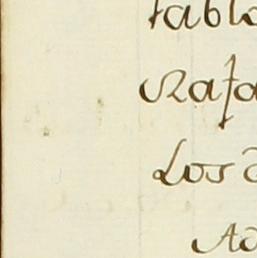 tabl
Rafa
Los d
Ad